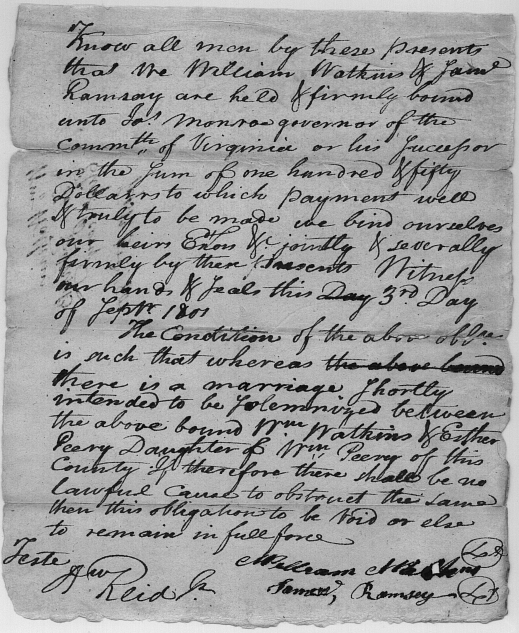 Know all men by these presents
that We William Watkins & Jams
Ramsay are held & firmly bound
unto Jas Monroe governor of the
Commth of Virginia or his Successor
in the Sum of one hundred & fifty
Dollairs to which payment well
& truly to be made we bind ourselves
our heirs Exors &c jointly & severally
firmly by these presents Witness
our hands & seals this Day 3rd Day
of Septr 1801
The Condition of the abov oblgn
is such that whereas the above bound
there is a marriage Shortly
intended to be Solemnized between
the above bound Wm Watkins & Esther
Peery Daughter of Wm Peery of this
County if therefore there shall be no
lawful Cause to obstruct the same
then this obligation to be Void or else
to remain in full force
Teste
William Watkins
Reid
James Ramsey